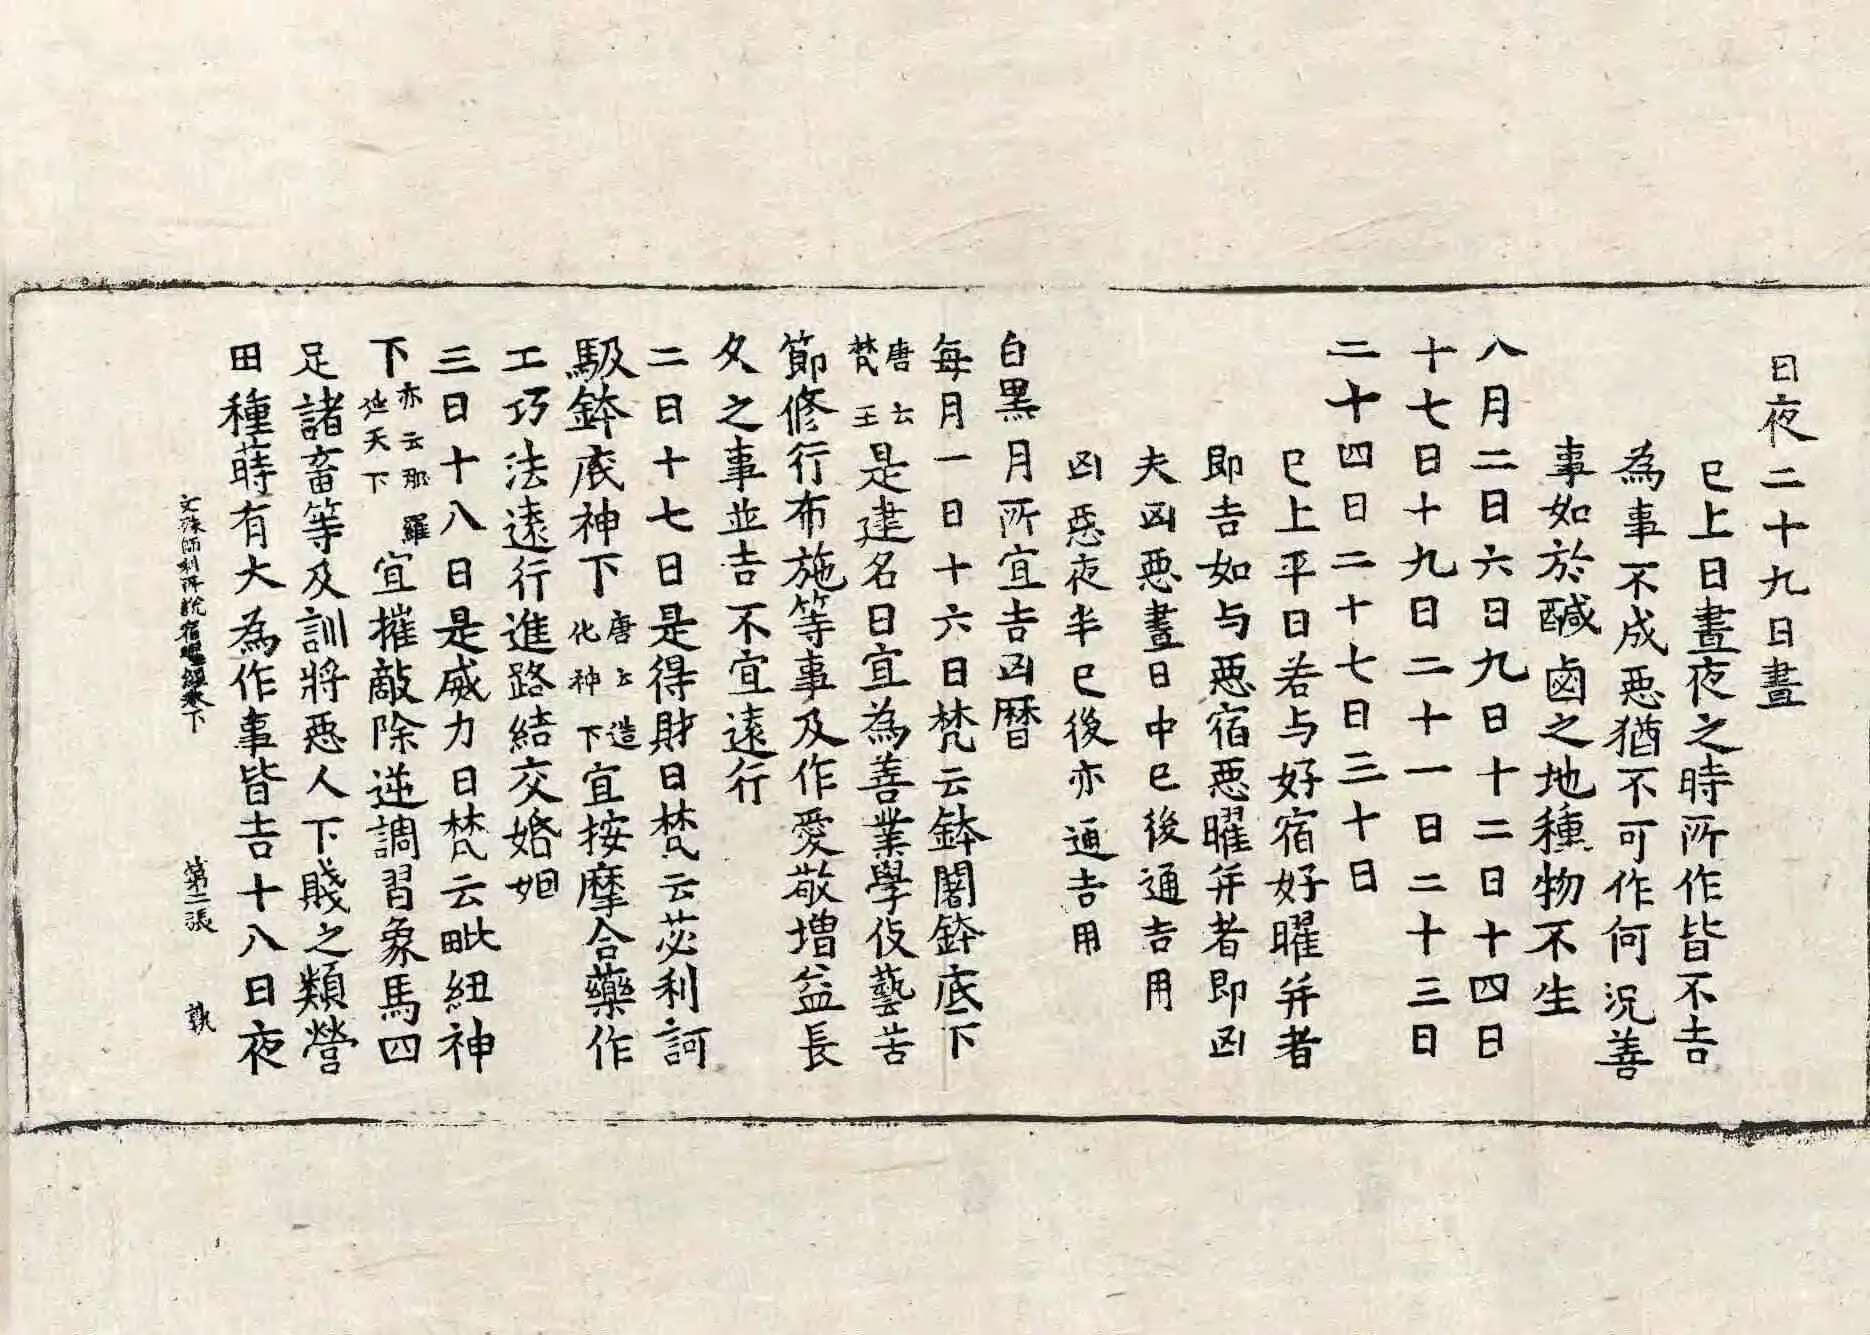 日夜二十九日晝
已上日晝夜之時所作皆不吉
為事不成惡猶不可作何況善
事如於醎鹵之地種物不生
八月二日六日九日十二日十四日
十七日十九日二十一日二十三日
二十四日二十七日三十日
已上平日若与好宿好曜并者
即吉如与惡宿惡曜并者即凶
夫凶惡晝日中已後通吉用
凶惡夜半已後亦通吉用
白黑月所宜吉凶曆
每月一日十六日梵云鉢闍鉢底下
唐云
梵王
是建名日宜為善業學伎藝苦
節修行布施等事及作愛敬增益長
久之事並吉不宜遠行
二日十七日是得財日梵云苾利訶
馺鉢底神下
唐云造
化神下
宜按摩合藥作
工巧法遠行進路結交婚姻
三日十八日是威力日梵云毗紐神
下
亦云那羅
延天下
宜摧敵除逆調習象馬四
足諸畜等及訓將惡人下賤之類營
田種蒔有大為作事皆吉十八日夜
文殊師利所說宿曜經卷下 第二張 執